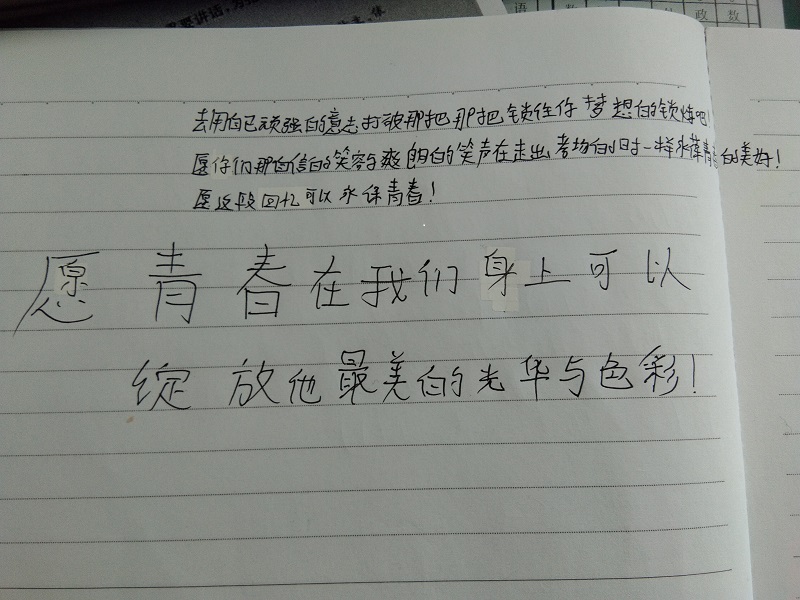 需要讲话,为
像
语 数 政 数
去用自己顽强的意志打破那把那把锁住你梦想的锁链吧!
愿你们那自信的笑容与爽朗的笑声在走出考场的时一样永葆青春的美好!
愿这段回忆可以永保青春!
愿青春在我们身上可以
绽放他最美的光华与色彩!